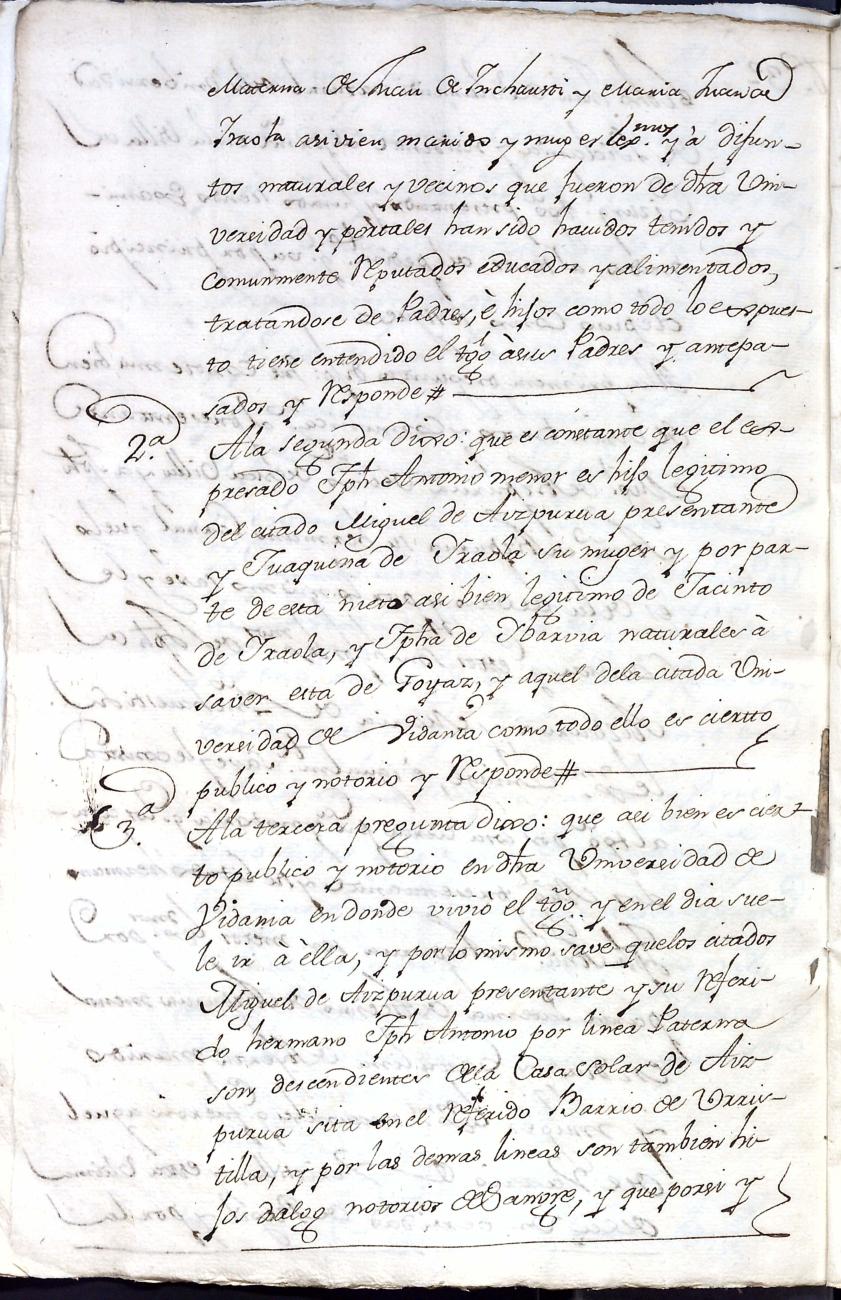 Materna de Juan de Inchausti y Maria Juana de
Iraola asivien marido y muger lexmos. y â difun-
tos naturales y vecinos que fueron de dha Uni-
versidad y portales han sido havidos tenidos y
comunmente Reputados educados y alimentados,
tratandose de Padres, è hijos como todo lo expues-
to tiene entendido el tgo â sus Padres y antepa-
sados y Responde #
2.a A la segunda dixo: que es constante que el ex-
presado Jph Antonio menor es hijo legitimo
del citado Miguel de Aizpurua presentante
y Juaquina de Iraola su muger y por par-
te de esta nieto asi bien legitimo de Jacinto
de Iraola, y Jpha de Ybarvia naturales à
saver esta de Goyaz, y aquel dela citada Uni-
versidad de Vidania como todo ello es ciertto
publico y notorio y Responde #
3.a A la tercera pregunta dixo: que asi bien es cier-
to publico y notorio en dha Universidad de
Vidania en donde vivió el tgo y en el dia sue-
le ir à èlla, y por lo mismo save quelos citados
Miguel de Aizpurua presentante y su referi-
do hermano Jph Antonio por linea Paterna
son descendientes dela Casa solar de Aiz-
purua sita en el Referido Barrio de Urris-
tilla, y por las demas lineas son tambien hi-
jos dalgo notorios de Sangre, y que por si y